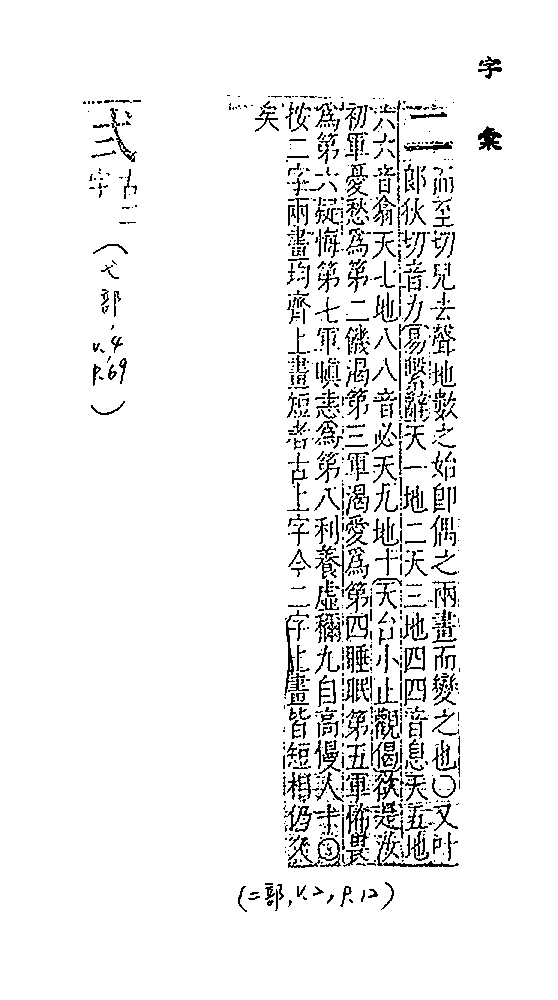 字彙
二 而至切兒去聲地數之始卽偶之兩畫而變之也○又叶
郎狄切音力易繫辭天一地二天三地四四音息天五地
六六音翁天七地八八音必天九地十天台小止觀偈欲是汝
初軍憂愁爲第二饑渴第三軍渴愛爲第四睡眠第五軍怖畏
爲第六疑悔第七軍嗔恚爲第八利養虛稱九自高慢人十③
按二字兩畫均齊上畫短者古上字今二字上畫皆短相仍久
矣
弍 古二
字
(弋部, V.4
P.69)
(二部, V.2, P.12)